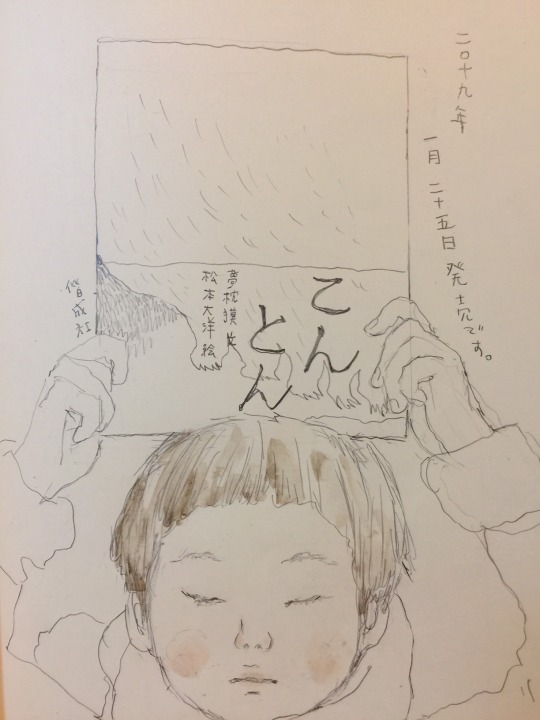 二〇十九年
一月 二十五日 発売です。
こん
とん
夢枕獏 文
松本大洋 絵
偕成社